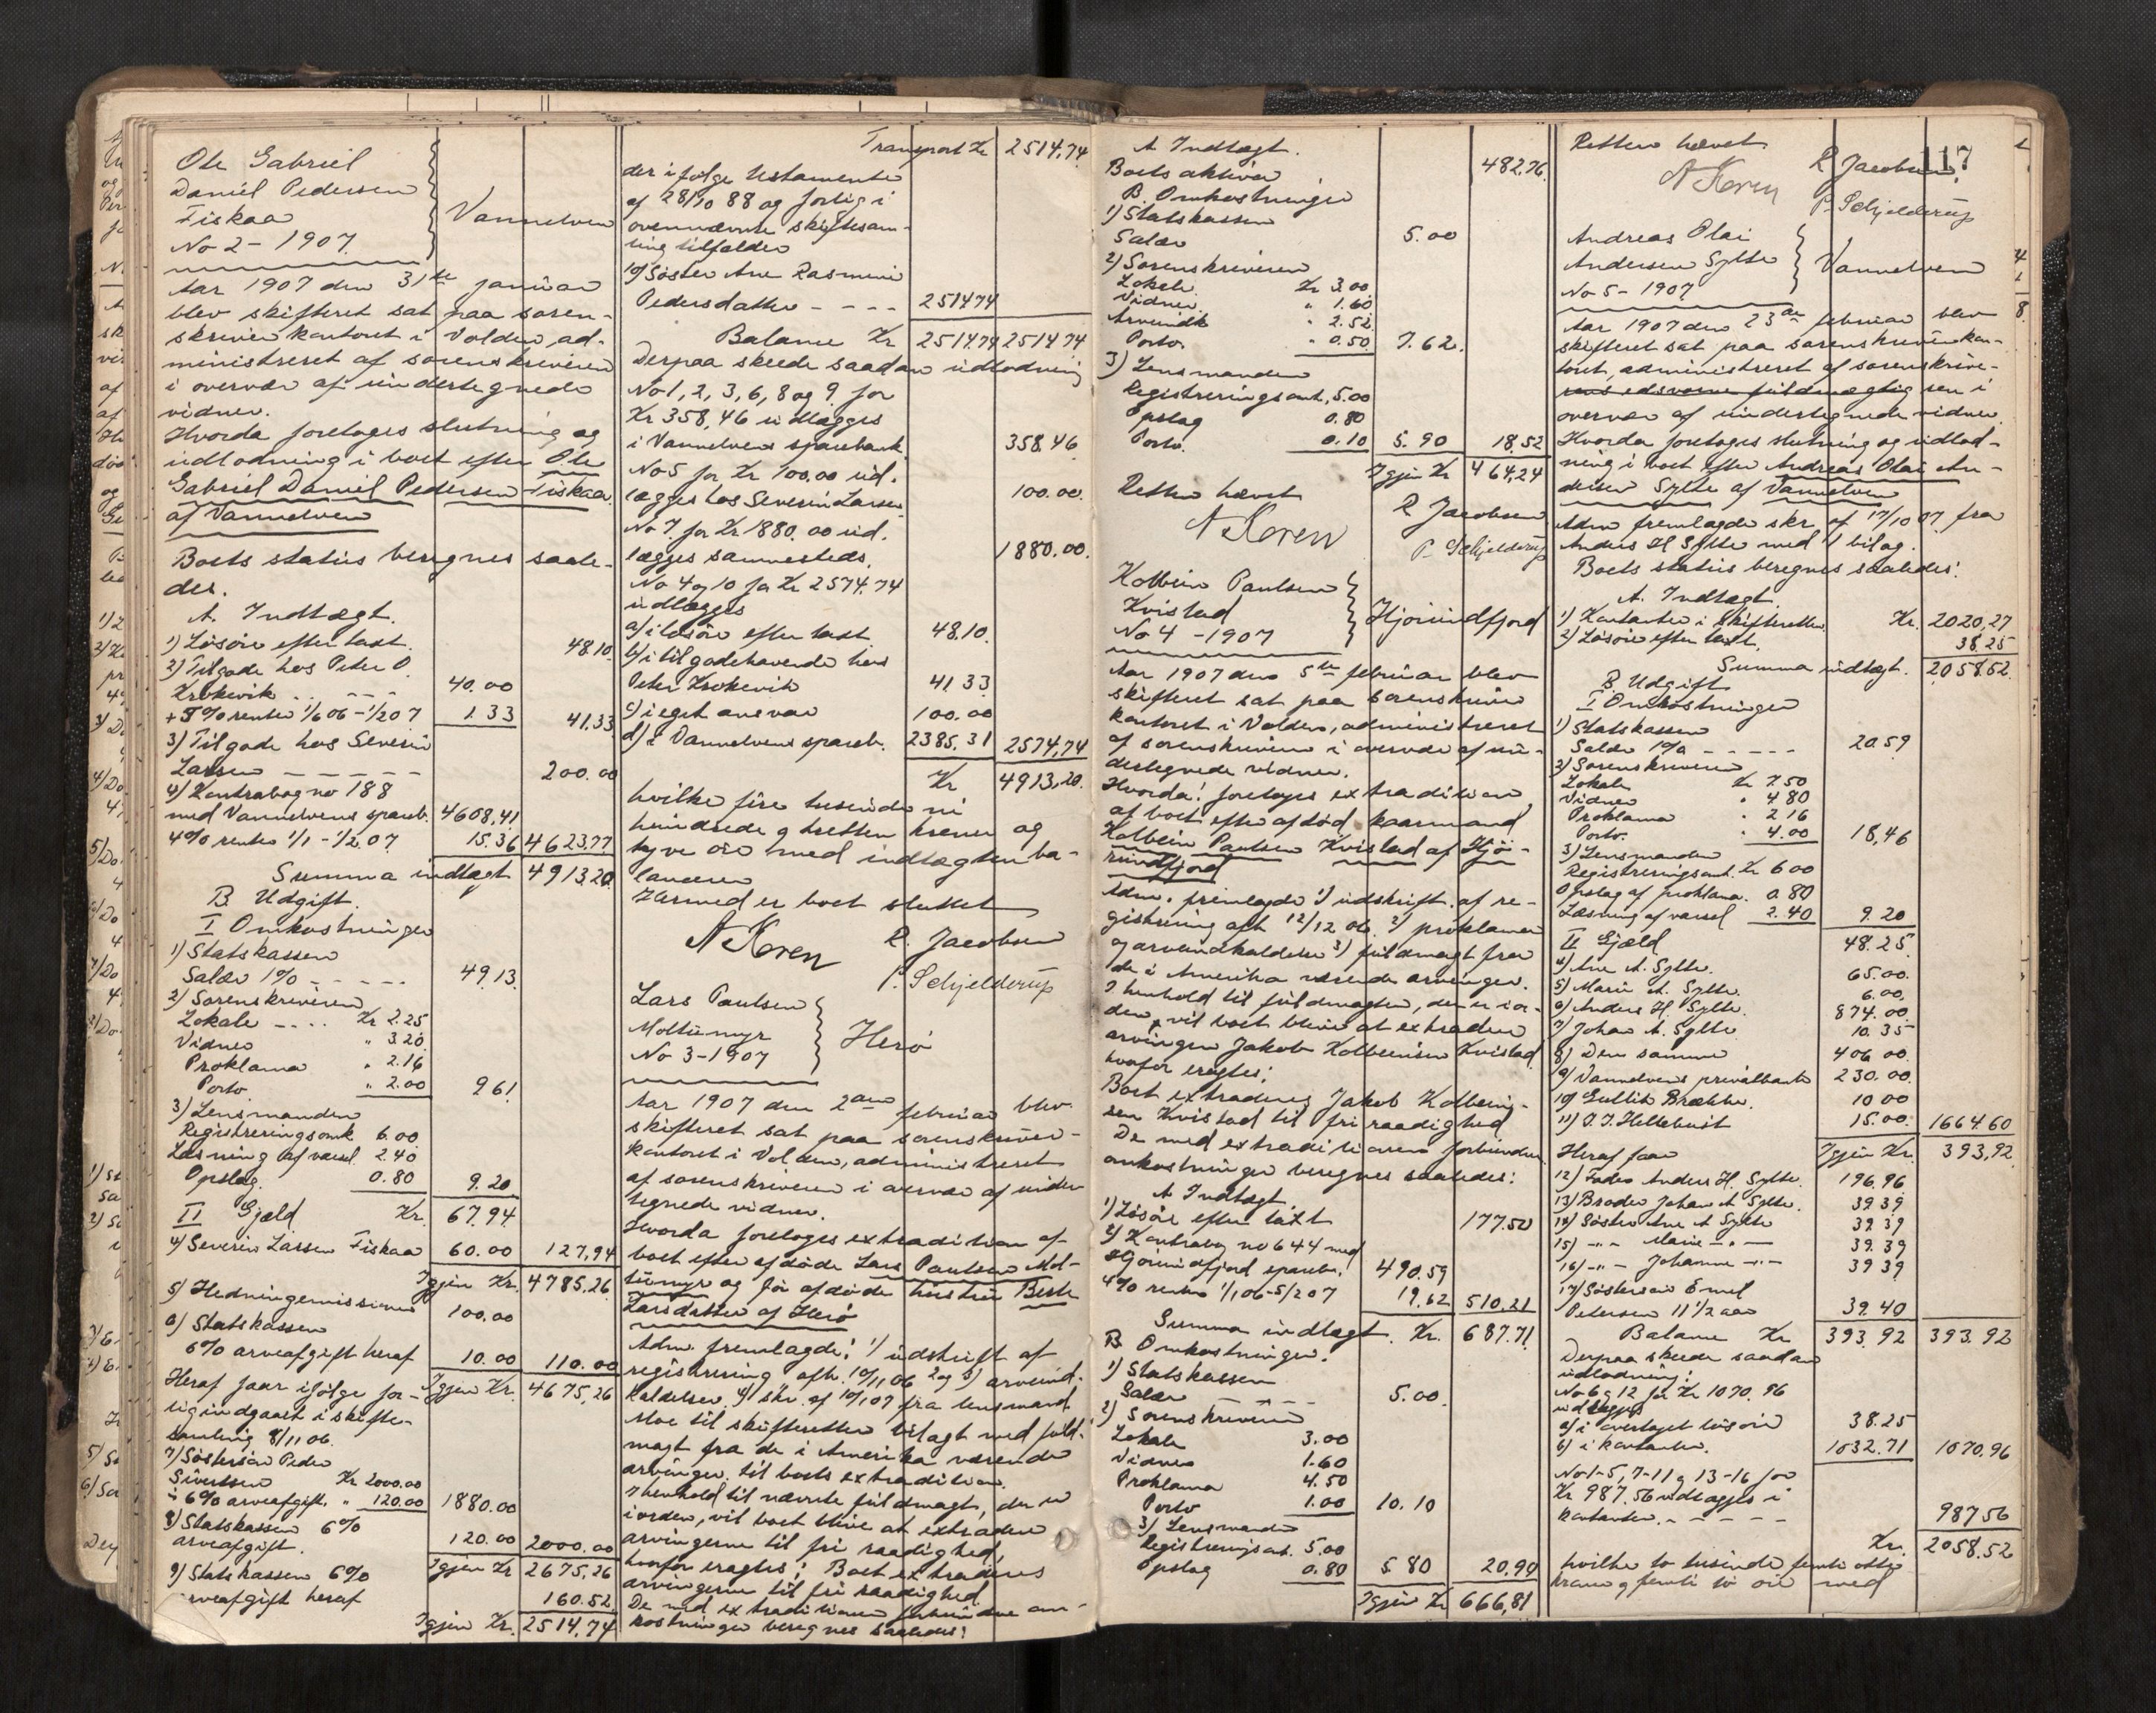 Ole Gabriel
Daniel Pedersen
Fiskaa
No 2 - 1907.
Vannelven
Aar 1907 den 31te januar
blev skifteret sat paa soren-
skriverkontoret i Volden, ad-
ministreret af sorenskriveren
i overvær af undertegnede
vidner.
Hvorda foretoges slutning og
udlodning i boet efter Ole
Gabriel Daniel Pedersen Fiskaa
af Vannelven
Boets status beregnes saale-
des.
A. Indtægt.
1) Løsøre efter taxt. 48.10
2) Tilgode hos Peter O.
Krokevik .. - - - 40.00
+ 5% rente 1/6 06 - 1/2 07 1.33 41.33
3) Tilgode hos Severin
Larsen - - - - - 200.00
4) Kontrabog no 188
med Vannelvens spareb. 4608,41
4% rente 1/1 - 1/2.07. 15.36 4623,77
Summa indtægt 4913,20
B. Udgift.
I Omkostninger
1) Statskassen
Salær 1% - - - - - 49.13.
2) Sorenskriveren
Lokale - ... Kr 2.25
Vidner " 3.20
Proklama " 2.16
Porto. " 2.00 9.61
3) Lensmanden
Registreringsomk 6.00
Læsning af varsel 2.40
Opslag. 0.80 9.20
II Gjæld Kr. 67.94
4) Severin Larsen Fiskaa 60.00 127,94
Igjen Kr. 4785,26
5) Hedningemissionen 100.00
6) Statskassen
6% arveafgift heraf 10.00 110.00
Heraf faar ifølge for- Igjen Kr. 4675,26
lig indgaaet i skifte-
samling 8/11 06.
7) Søstersøn Peder
Sivertsen Kr 2000.00
÷ 6% arveafgift. " 120.00 1880.00
8) Statskassen 6%
arveafgift. 120.00 2000.00
Igjen Kr 2675,26
9) Statskassen 6%
arveafgift heraf 160.52
Igjen Kr. 2514,74
Transport Kr 2514,74
der ifølge testamente
af 28/10 88 og forlig i
ovennævnte skiftesam-
ling tilfalder
10) Søster Ane Rasmine
Pedersdatter - - - - 2514 74
Balance Kr 2514 74 2514 74
Derpaa skeede saadan udlodning
No 1, 2, 3, 6, 8 og 9 for
Kr 358,46 udlægges
i Vannelvens sparebank 358.46
No 5 for Kr 100.00 ud-
lægges hos Severin Larsen 100.00.
No 7 for Kr 1880.00 ud-
lægges sammesteds. 1880.00.
No 4 og 10 for Kr 2574.74
udlægges
a) i løsøre efter taxt 48.10.
b) i tilgodehavende hos
Peter Krokevik 41 33.
c) i eget ansvar 100.00
d) i Vannelvens spareb. 2385.31 2574,74
Kr 4913,20.
hvilke fire tusinde ni
hundrede og tretten kroner og
tyve øre med indtægten ba-
lancerer
Hermed er boet sluttet
N Koren R. Jacobsen
P. Schjelderup
Lars Paulsen
Moltumyr
No 3 - 1907
Herø
Aar 1907 den 2den februar blev
skifteret sat paa sorenskriver-
kontoret i Volden, administreret
af sorenskriveren i overvær af under
tegnede vidner.
Hvorda foretoges extradition af
boet efter afdøde Lars Paulsen Mol-
tumyr og før afdøde hustru Berte
Larsdatter af Herø
Adm. fremlagde: 1) udskrift af
registrering afh. 10/11 06 2 og 3) arveind-
kaldelser. 4) skr. af 10/1 07 fra lensmand
Moe til skifteretten bilagt med fuld-
magt fra de i Amerika værende
arvinger til boets extradition.
I henhold til nævnte fuldmagt, der er
i orden, vil boet blive at extradere
arvingerne til fri raadighed,
hvorfor eragtes: Boet extraderes
arvingerne til fri raadighed
De med extraditionen forbundne om-
kostninger beregnes saaledes:
117
A Indtægt.
Boets aktiver 482,76.
B. Omkostninger
1) Statskassen
Salær 5.00
2) Sorenskriveren
Lokale Kr 3.00
Vidner. " 1.60
Arveindk " 2.52
Porto. " 0.50 7.62.
3) Lensmanden
Registreringsomk. 5.00
Opslag 0.80
Porto. 0.10 5.90 18.52
Igjen Kr 464,24
Retten hævet
N Koren R Jacobsen
P. Schjelderup
Kolbein Paulsen
Kvistad
No 4 - 1907
Hjørundfjord
Aar 1907 den 5te februar blev
skifteret sat paa sorenskriver
kontoret i Volden, administreret
af sorenskriveren i overvær af un-
dertegnede vidner.
Hvorda: foretoges extradition
af boet efter afdød kaarmand
Kolbein Paulsen Kvistad af Hjø-
rundfjord
Adm. fremlagde 1) udskrift af re-
gistrering afh 12/12 06. 2) proklama
og arveindkaldelse 3) fuldmagt fra
de i Amerika værende arvinger.
I henhold til fuldmagten, der er i or-
den, vil boet blive at extradere
arvingen Jakob Kolbeinsen Kvistad,
hvorfor eragtes:
Boet extraderes Jakob Kolbein-
sen Kvistad til fri raadighed
De med extraditionen forbundne
omkostninger beregnes saaledes:
A Indtægt.
1) Løsøre efter taxt 177.50
2) Kontrabog no 644 med
Hjørundfjord spareb. 490.59
4% rente 1/1 06 - 5/2 07 19.62 510.21
Summa indtægt. Kr. 687.71
B Omkostninger.
1) Statskassen
Salær - - - - 5.00.
2) Sorenskriveren
Lokale 3.00
Vidner 1.60
Proklama 4.50
Porto 1.00 10.10
3) Lensmanden
Registreringsomk. 5.00
Opslag 0.80 5 80 20.90
Igjen Kr 666,81
Retten hævet
N Koren R Jacobsen
P. Schjelderup
Andreas Olai
Andersen Sylte
No 5 - 1907
Vannelven
Aar 1907 den 23de februar blev
skifteret sat paa sorenskriverkon-
toret, administreret af sorenskrive-
rens edsvorne fuldmægtig ren i
overvær af undertegnede vidner
Hvorda foretoges slutning og udlod-
ning i boet efter Andreas Olai An-
dersen Sylte af Vannelven
Adm fremlagde skr. af 17/10 07 fra
Anders H Sylte med 1 bilag.
Boets status beregnes saaledes:
A. Indtægt.
1) Kontanter i skifteretten. Kr. 2020,27
2) Løsøre efter taxt. 38.25
Summa indtægt. 2058.52.
B Udgift
I Omkostninger
1) Statskassen
Salær 1% - - - - - 20.59
2) Sorenskriveren
Lokale Kr 7.50
Vidner " 4 80
Proklama " 2 16
Porto. " 4.00 18,46
3) Lensmanden
Registreringsomk. Kr 6 00
Opslag af proklama. 0.80
Læsning af varsel 2.40 9.20
II Gjæld 48.25.
4) Ane A. Sylte. 65.00.
5) Marie A. Sylte. 6.00.
6) Anders H. Sylte. 874.00.
7) Johan A. Sylte 10.35
8) Den samme 406 00.
9) Vannelvens privatbank 230.00.
10) Gullik Brække. 10 00
11) O. J. Helleberust 15.00. 1664.60
Heraf faar Igjen Kr. 393,92
12) Fader Anders H. Sylte. 196.96
13) Broder Johan A Sylte. 39.39
14) Søster Ane A Sylte 39.39
15) -"- Marie -"- 39.39
16) -"- Johanne -"- 39 39
17) Søstersøn Emil
Petersen 11 1/2 aar 39.40
Balance Kr 393.92 393.92
Derpaa skeede saadan
udlodning:
No 6 og 12 for Kr 1070.96
udlægges
a) i overtaget løsøre 38.25
b) i kontanter. 1032.71 1070.96
No 1-5, 7-11 og 13-16 for
Kr 987.56 udlægges i
kontanter. - - - - - 987 56
Kr. 2058.52
hvilke to tusinde femti otte
kroner og femti to øre med